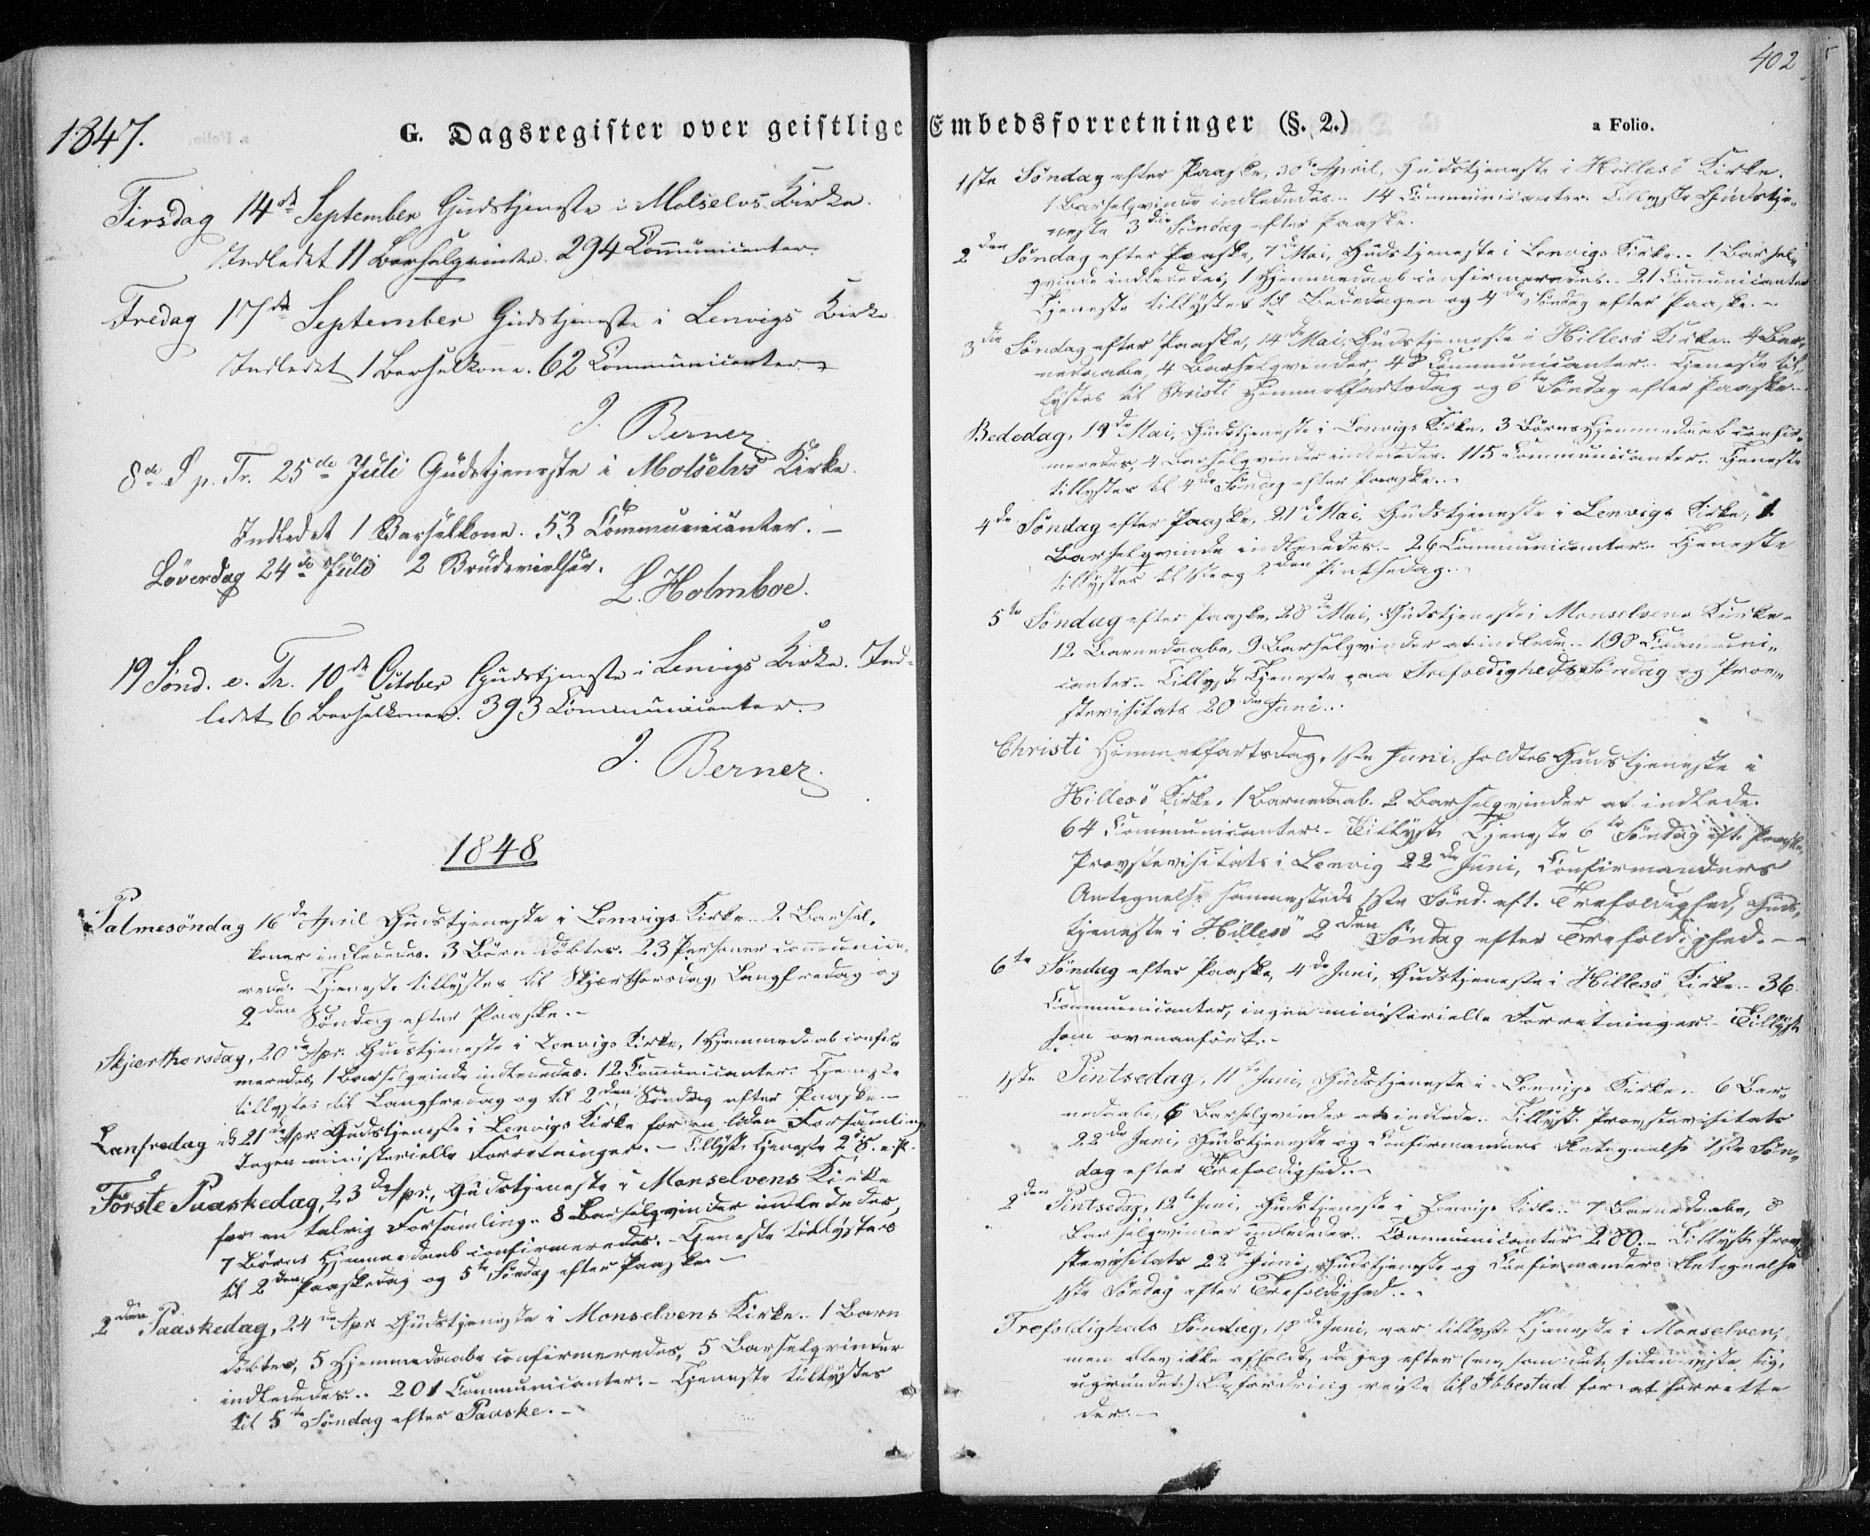 402
1847.
G. Dagsregister over geistlige Embedsforretninger (§. 2.)
a Folio.
Tirsdag 14de September Gudstjeneste i Molselvs Kirke.
Indledet 11 Barselqvinder. 294 Communicanter.
Fredag 17de September Gudstjeneste i Lenvigs Kirke
Indledet 1 Barselkone. 62 Communicanter.
J. Berner.
8de S p. Tr. 25de Juli Gudstjeneste i Molselvs Kirke.
Indledet 1 Barselkone. 53 Communicanter. –
Løverdag 24de Juli 2 Brudevielser.
L. Holmboe.
19 Sønd. e. Tr. 10de October Gudstjeneste i Lenvigs Kirke. Ind-
ledet 6 Barselkoner. 393 Communicanter.
J. Berner.
1848
Palmesöndag 16de April Gudstjeneste i Lenvigs Kirke.. 2 Barsel-
koner indlededes. 3 Börn döbtes. 23 Personer communice-
rede. Tjeneste tillystes til Skjærthorsdag, Langfredag og
2den Söndag efter Paaske. –
Skjærthorsdag, 20de Apr. Gudstjeneste i Lenvigs Kirke, 1 Hjemmedaab confir-
meredes, 1 Barselqvinde indlededes. 12 Communicanter. Tjeneste
tillystes til Langfredag og til 2den Söndag efter Paaske –
Lanfredag d. 21de Apr. Gudstjeneste i Lenvigs Kirke for en liden Forsamling
Ingen ministerielle Forretninger. – Tillyst Tjeneste 2 S. e. P.
Förste Paaskedag, 23de Apr., Gudstjeneste i Monselvens Kirke
for en talrig Forsamling. 8 Barselqvinder indlededes,
7 Börns Hjemmedaab confirmeredes. – Tjeneste tillystes
til 2den Paaskedag og 5te Söndag efter Paaske –
2den Paaskedag, 24de Apr. Gudstjeneste i Monselvens Kirke.. 1 Barn
döbtes, 5 Hjemmedaabe confirmeredes, 5 Barselqvinder
indlededes.. 201 Communicanter. – Tjeneste tillystes
til 5te Söndag efter Paaske. –
1ste Söndag efter Paaske, 30te April, Gudstjeneste i Hillesö Kirke.
1 Barselqvinde indlededes. – 14 Communicanter. Tillyste Gudstje-
neste 3die Söndag efter Paaske.
2den Söndag efter Paaske, 7de Mai, Gudstjeneste i Lenvigs Kirke.. 1 Barsel-
qvinde indlededes, 1 Hjemmedaab confirmeredes. – 21 Communicanter
Tjeneste tillystes til Bededagen og 4de Söndag efter Paaske. –
3die Söndag efter Paaske, 14de Mai, Gudstjeneste i Hillesö Kirke. 4 Bar-
nedaabe, 4 Barselqvinder, 48 Communicanter.. Tjeneste til-
lystes til Christi Himmelfartsdag og 6te Söndag efter Paaske. –
Bededag, 19de Mai, Gudstjeneste i Lenvigs Kirke. 3 Börns Hjemmedaab confir-
meredes, 4 Barselqvinder indlededes. 115 Communicanter. Tjeneste
tillystes til 4de Söndag efter Paaske..
4de Söndag efter Paaske, 21de Mai, Gudstjeneste i Lenvigs Kirke, 1
Barselqvinde indlededes. – 26 Communicanter.. Tjeneste
tillystes til 1ste og 2den Pintsedag..
5te Söndag efter Paaske, 28de Mai, Gudstjeneste i Monselvens Kirke –
12 Barnedaabe, 9 Barselqvinder at indlede.. 198 Communi-
canter.. Tillyst Tjeneste paa Trefoldigheds Söndag og Prov-
stevisitats 20de Juni..
Christi Himmelfartsdag, 1ste Juni, holdtes Gudstjeneste i
Hillesö Kirke. 1 Barnedaab. 2 Barselqvinder at indlede.
64 Communicanter. – Tillyst Tjeneste 6te Söndag eft. Paaske,
Provstevisitats i Lenvig 22de Juni, Confirmanders
Antegnelse sammesteds 1ste Sönd. eft. Trefoldighed, Guds-
tjeneste i Hillesö 2den Söndag efter Trefoldighed. –
6te Söndag efter Paaske, 4de Juni, Gudstjeneste i Hillesö Kirke.. 36
Communicanter, ingen ministerielle Forretninger. – Tillyst
som ovenanfört. –
1ste Pintsedag, 11te Juni, Gudstjeneste i Lenvigs Kirke.. 6 Bar-
nedaabe, 6 Barselqvinder at indlede.. Tillyst Provstevisitats
22de Juni, Gudstjeneste og Confirmanders Antegnelse 1ste Sön-
dag efter Trefoldighed. –
2den Pintsedag, 12te Juni, Gudstjeneste i Lenvigs Kirke.. 7 Barnedaabe, 8
Barselqvinder indlededes.. Communicanter 280. – Tillyst Prov-
stevisitats 22de Juni, Gudstjeneste og Confirmanders Antegnelse
1ste Söndag efter Trefoldighed..
Trefoldigheds Söndag, 18de Juni, var tillyst Tjeneste i Monselven,
men blev ikke afholdt, da jeg efter (en, som det siden viste sig,
ugrundet) Opfordring reiste til Ibbestad for at forrette
der. –